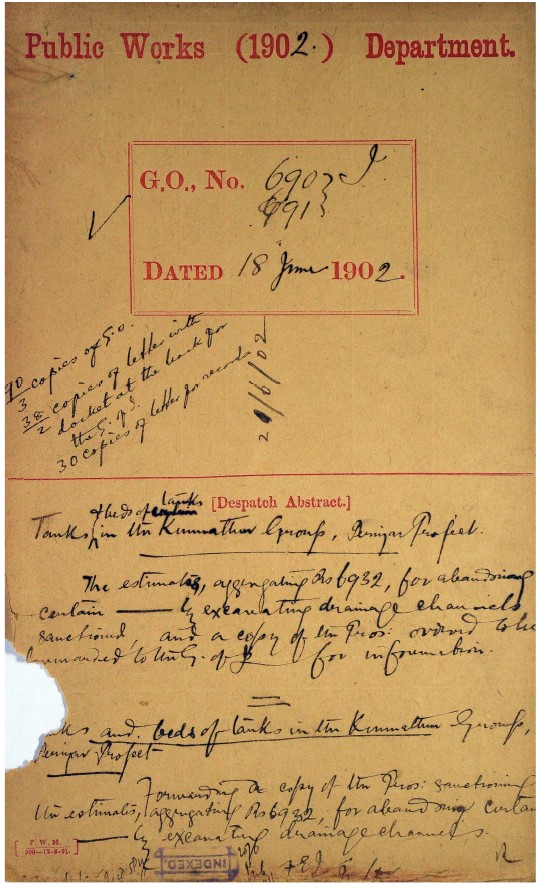 Public Works (1902.) Department.
G.O., No. 690 I
691
DATED 18 June 1902.
70 copies of G.O.
3
38 copies of letter with
2 docket at the back for
the G. of I.
30 copies of letter for records
2 /6/02
& beds of tanks
[Despatch Abstract.]
Tanks in the Kunnathur Group, Periyar Project.
The estimates, aggregating Rs 6932, for abandoning
certain —— by excavating drainage channels
sanctioned, and a copy of the Pros: ordered to be
forwarded to the G. of I for information.
and beds of tanks in the Kunnathur Group,
Periyar Project
Forwarding a copy of the Pros: sanctioning
the estimates, aggregating Rs 6932, for abandoning certain
—— by excavating drainage channels.
[ P. W. M.
INDEXED